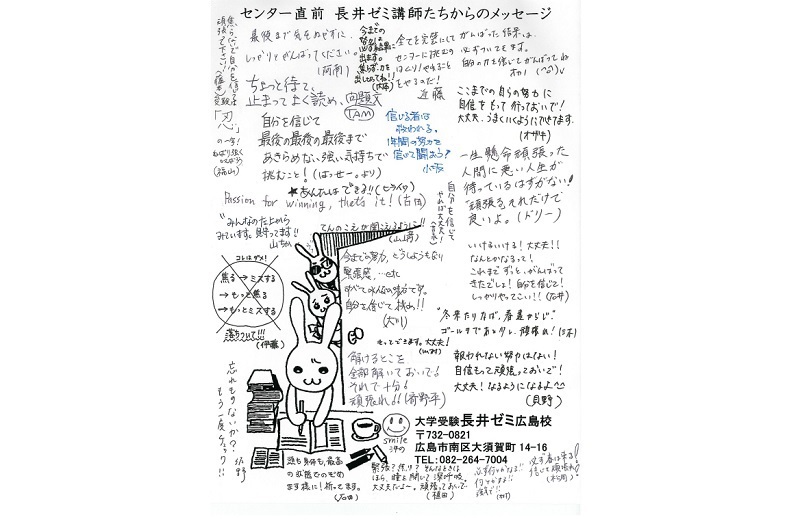 センター直前 長井ゼミ講師たちからのメッセージ
最後まで気をぬかずに、
しっかりとがんばってください。
(阿南)
今までの
努力は
必ず結果に
出ます。
焦らず力を
出しきってね!!
全てを完璧にして
センターに挑むの
はムリ!やれること
をやるのだ!
近藤
がんばった結果は、
必ずついてきます。
自分の力を信じてがんばってね
ちょっと待て、
止まってよく読め、問題文
TAM
ここまでの自らの努力に
自信をもって行っておいで!
大丈夫、うまくいくようにできてます。
(オザキ)
「忍」
の一字!
ねばり強く
自分を信じて
最後の最後の最後まで
あきらめない強い気持ちで
挑むこと!(はっせーより)
信じる者は
救われる。
1年間の努力を
信じて闘おう!
小坂
一生懸命頑張った
人間に悪い人生が
待っているはずがない!
頑張るそれだけで
良いよ。(ドリー)
★あんたらはできる!!(ヒライワ)
Passion for winning, that's it!(古田)
自分を信じて
やれば大丈夫!
みんなの上から
みています。見守ってます!!
山ちゃん
てんのこえが聞こえるように!!
コレはダメ!
焦る→ミスする
→もっと焦る
→もっとミスする
落ちついて!!!
(伊藤)
今までの努力、どうしようもない
緊張感、…etc
すべてみんなの味方です。
自分を信じて挑め!!
(大川)
いけるいける!大丈夫!!
なんとかなるって!
これまでずっと、がんばって
きたでしょ!自分を信じて!
しっかりやってこい!!(石井)
"冬来たりなば、春遠からじ"
ゴールまであと少し、頑張れ!
もってできます。大丈夫!
解けるとこを
全部解いておいで!
それで十分!
頑張れ!!(高野平)
報われない努力はない!
自信もって頑張っておいで!
大丈夫!なるようになるよ^^
(貝野)
忘れものないか?
もう一度チェック!!
smile
大学受験 長井ゼミ広島校
〒732-0821
広島市南区大須賀町 14-16
TEL:082-264-7004
頭も身体も、最高
の状態でのぞめ
ます様に!祈ってます。
(石田)
緊張?焦り?そんなときは
ほら、瞳を閉じて深呼吸。
大丈夫だよ~。頑張っておいで
(植田)
必ず春は来る!
信じて頑張れ!